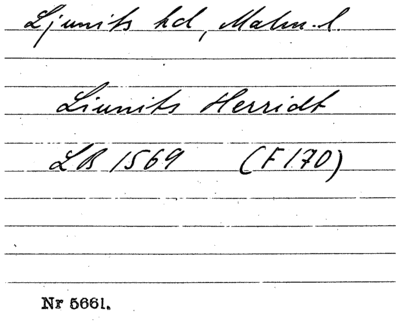 Ljunits hd, Malm. l.
Liunits Herridt
LB 1569 (F 170)
Nr 5661.